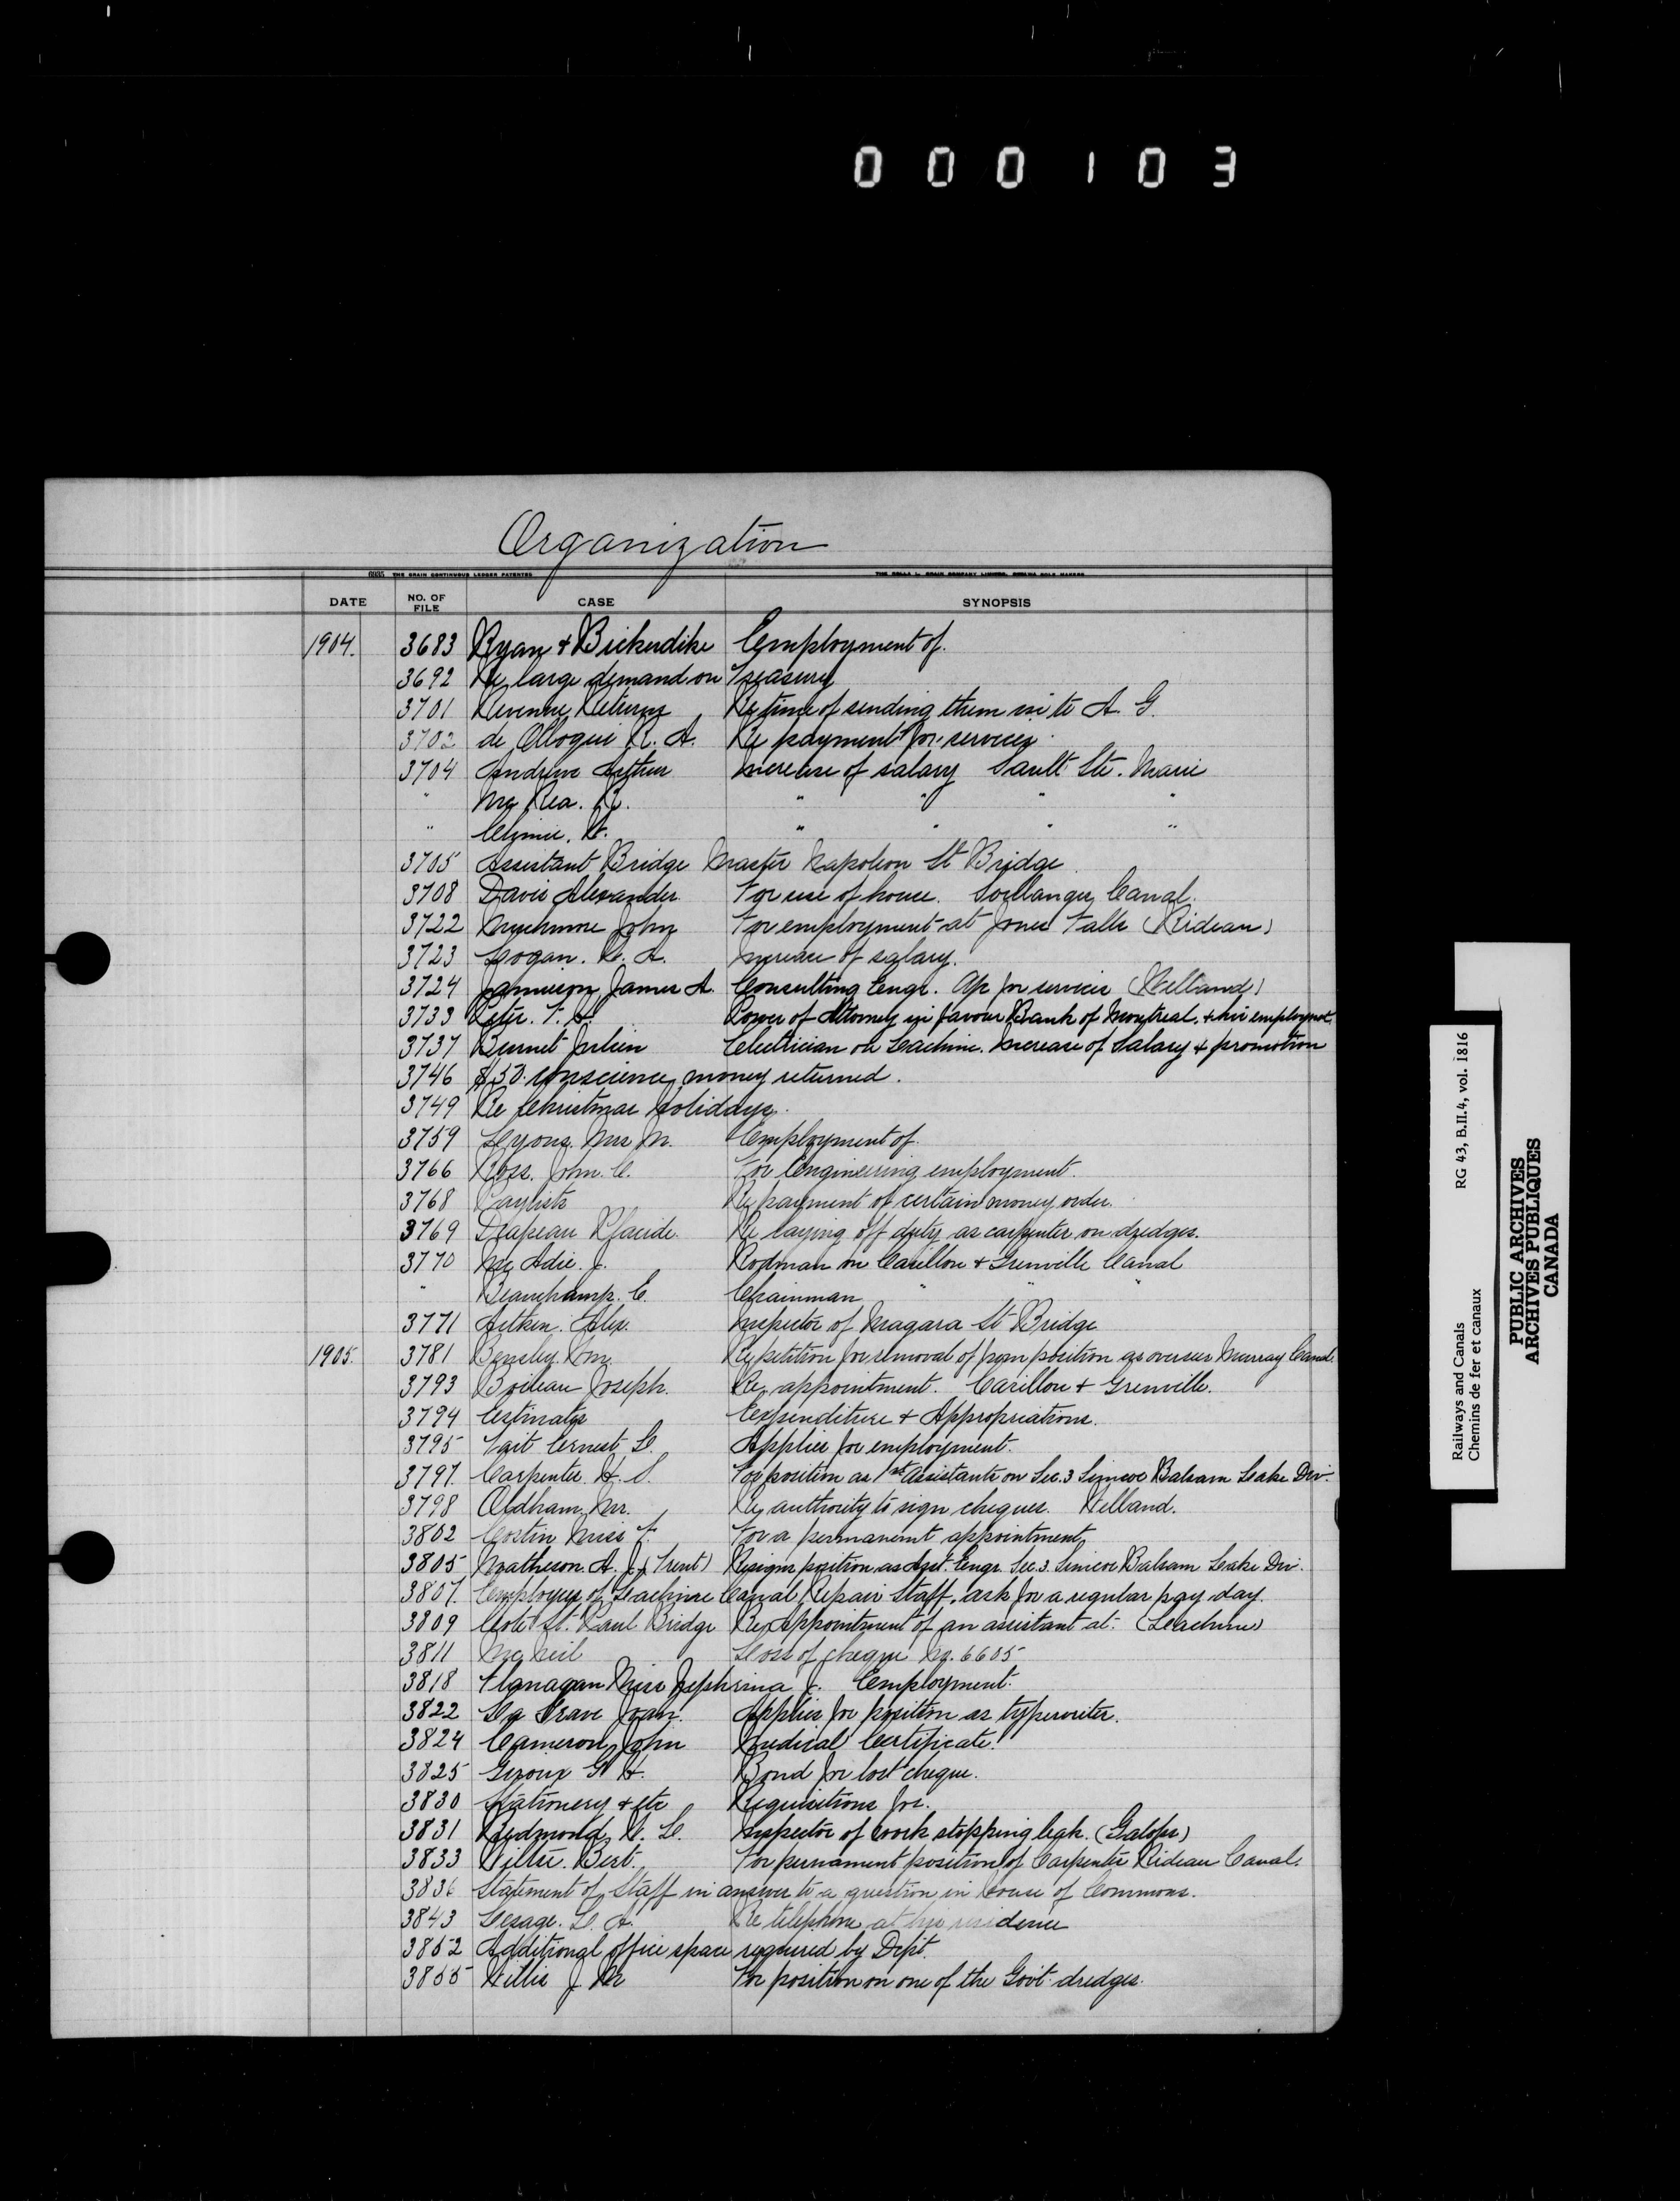 000103
Organization
DATE NO. OF FILE CASE SYNOPSIS
1904. 3683 Ryan & Bickerdike Employment of.
3692 Re large demand on Treasury
3701 Revenue Returns Re time of sending them in to A. G.
3702 de Olloqui R. A. Re payment for services.
3704 Andrew Arthur Increase of salary Sault Ste. Marie
" McRea. R. " " " "
" Clymie. H. " " " "
3705 Assistant Bridge Master Napoleon St Bridge
3708 Davis Alexander. For use of house. Soulanges Canal.
3722 Munchmore John For employment at Jones Falls (Rideau)
3723 Logan. W. A. Increase of salary.
3724 Jamieson James A. Consulting Engr. A/c for services (Welland)
3733 T. A. Power of Attorney in favour Bank of Montreal. & his employmt.
3737 Burnet Julien Electrician on Lachine. Increase of Salary & promotion
3746 $50. conscience money returned.
3749 Re Christmas holidays.
3759 Lyons. Mrs M. Employment of.
3766 Ross. John. C. For Engineering employment.
3768 Paylists Re payment of certain money order.
3769 Drapeau Placide. Re laying off duty as carpenter on dredges.
3770 McAdie. J. Rodman on Carillon & Grenville Canal
" Beauchamp. E. Chainman " "
3771 Aitken. Alex. Inspector of Niagara St Bridge
1905. 3781 Bensley Wm. Re petition for removal of from position as overseer Murray Canal.
3793 Boileau Joseph. Re appointment. Carillon & Grenville.
3794 Estimates Expenditure & Appropriations.
3795 Tait Ernest L. Applies for employment.
3797. Carpenter. H. S. For position as 1st assistant on Sec. 3 Simcoe Balsam Lake Div.
3798 Oldham, Mr. Re authority to sign cheques. Welland.
3802 Costin Miss F. For a permanent appointment,
3805 Matheson. A. J. (Trent) Resigns position as Asst. Engr. Sec. 3. Simcoe Balsam Lake Div.
3807. Employees of Lachine Canal Repair Staff, ask for a regular pay day.
3809 Cote St. Paul Bridge Re Appointment of an assistant at. (Lachine)
3811 McNeil Loss of cheque No. 6605
3818 Flanagan Miss Zephrina J. Employment.
3822 La Grave Joan. Applies for position as typewriter.
3824 Cameron John Medical Certificate.
3825 Giroux G. H. Bond for lost cheque.
3830 Stationery & etc Requisitions for.
3831 Redmond, W. L. Inspector of work stopping leak. (Galops)
3833 Wiltse. Bert. For permanent position of Carpenter Rideau Canal.
3836 Statement of Staff in answer to a question in House of Commons.
3843 Lesage. L. A. Re telephone at his residence
3852 Additional office space required by Dept.
3855 Willis J. M For position on one of the Govt. dredges.
Railways and Canals RG 43, B.II.4, vol. 1816
Chemins de fer et canaux
PUBLIC ARCHIVES
ARCHIVES PUBLIQUES
CANADA